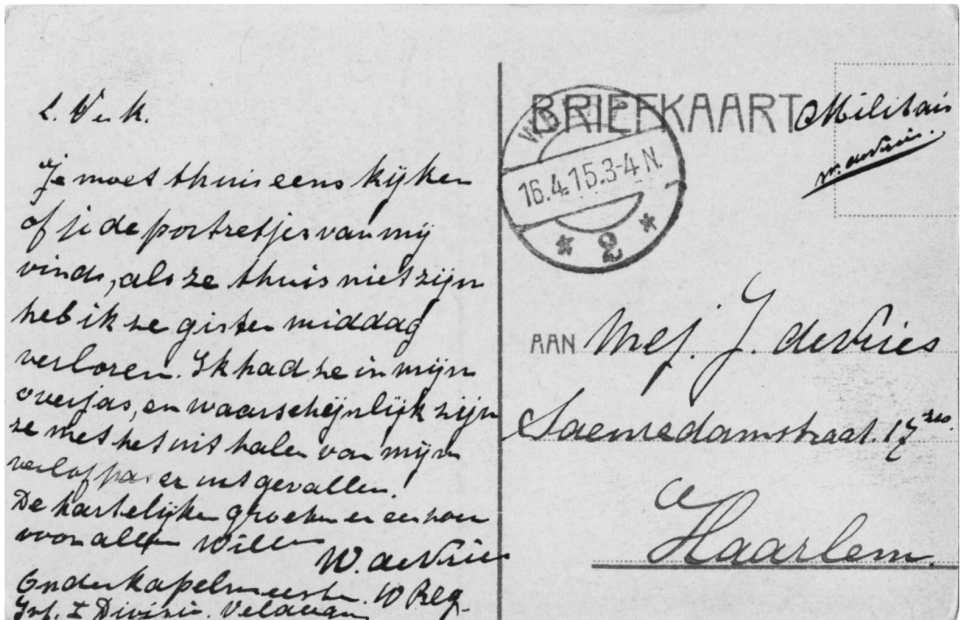 L. V. k.
Je moet thuis eens kijken
of je de portretjes van mij
vinds, als ze thuis niet zijn
heb ik ze gister middag
verloren. Ik had ze in mijn
overjas, en waarschijnlijk zijn
ze met het uit halen van mijn
verlofpas er uit gevallen.
De hartelijke groeten en een zoen
voor allen Willem
W. de Vries
Onderkapelmeester 10 Reg.
Inf. I Divisie. Veldleger
BRIEFKAART
Militair
W. de Vries.
16.4.15.3-4 N.
2
AAN Mej. J. de Vries
Saenredamstraat. 17 zw.
Haarlem.